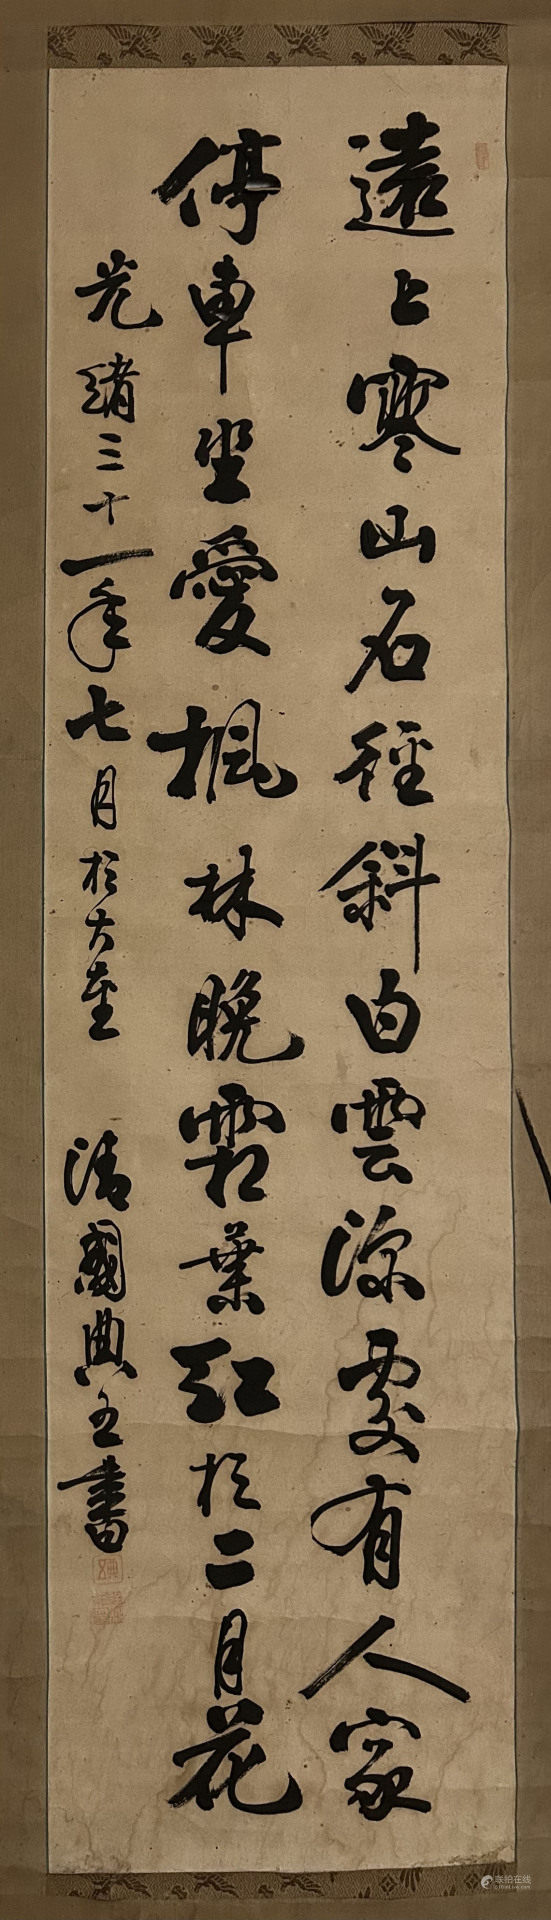 遠上寒山石徑斜白雲深處有人家
停車坐愛楓林晚霜葉紅於二月花
光緒三十一年七月於大連
清國典五書
联拍在线